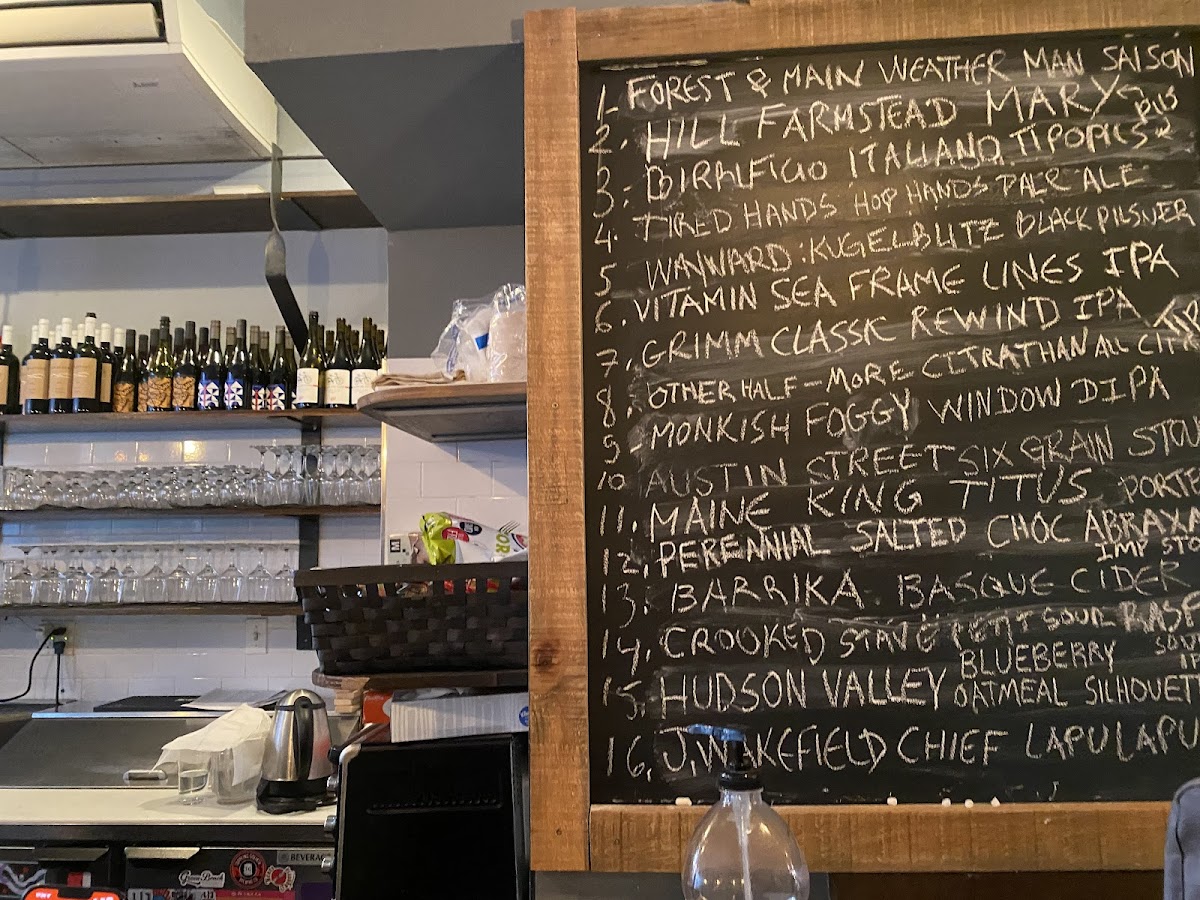 1- FOREST & MAIN WEATHER MAN SAISON
2. HILL FARMSTEAD MARY
PILS
3. BIRRIFICIO ITALIANO TIPOPILS
4. TIRED HANDS HOP HANDS PALE ALE
5 WAYWARD: KUGELBLITZ BLACK PILSNER
6. VITAMIN SEA FRAME LINES IPA
7. GRIMM CLASSK REWIND IPA
8. OTHER HALF - MORE CITRA THAN ALL CITRA
9. MONKISH FOGGY WINDOW DIPA
10 AUSTIN STREET SIX GRAIN STOU
11. MAINE KING TITUS PORTE
12. PERENNIAL SALTED CHOC ABRAXA
IMP STO
13. BARRIKA BASQUE CIDER
14. CROOKED STAVE PETIT SOUR RASP
15. HUDSON VALLEY BLUEBERRY OATMEAL SILHOUETT
SOUR
IP
16. J. WAKEFIELD CHIEF LAPU LAPU
BEVERAG